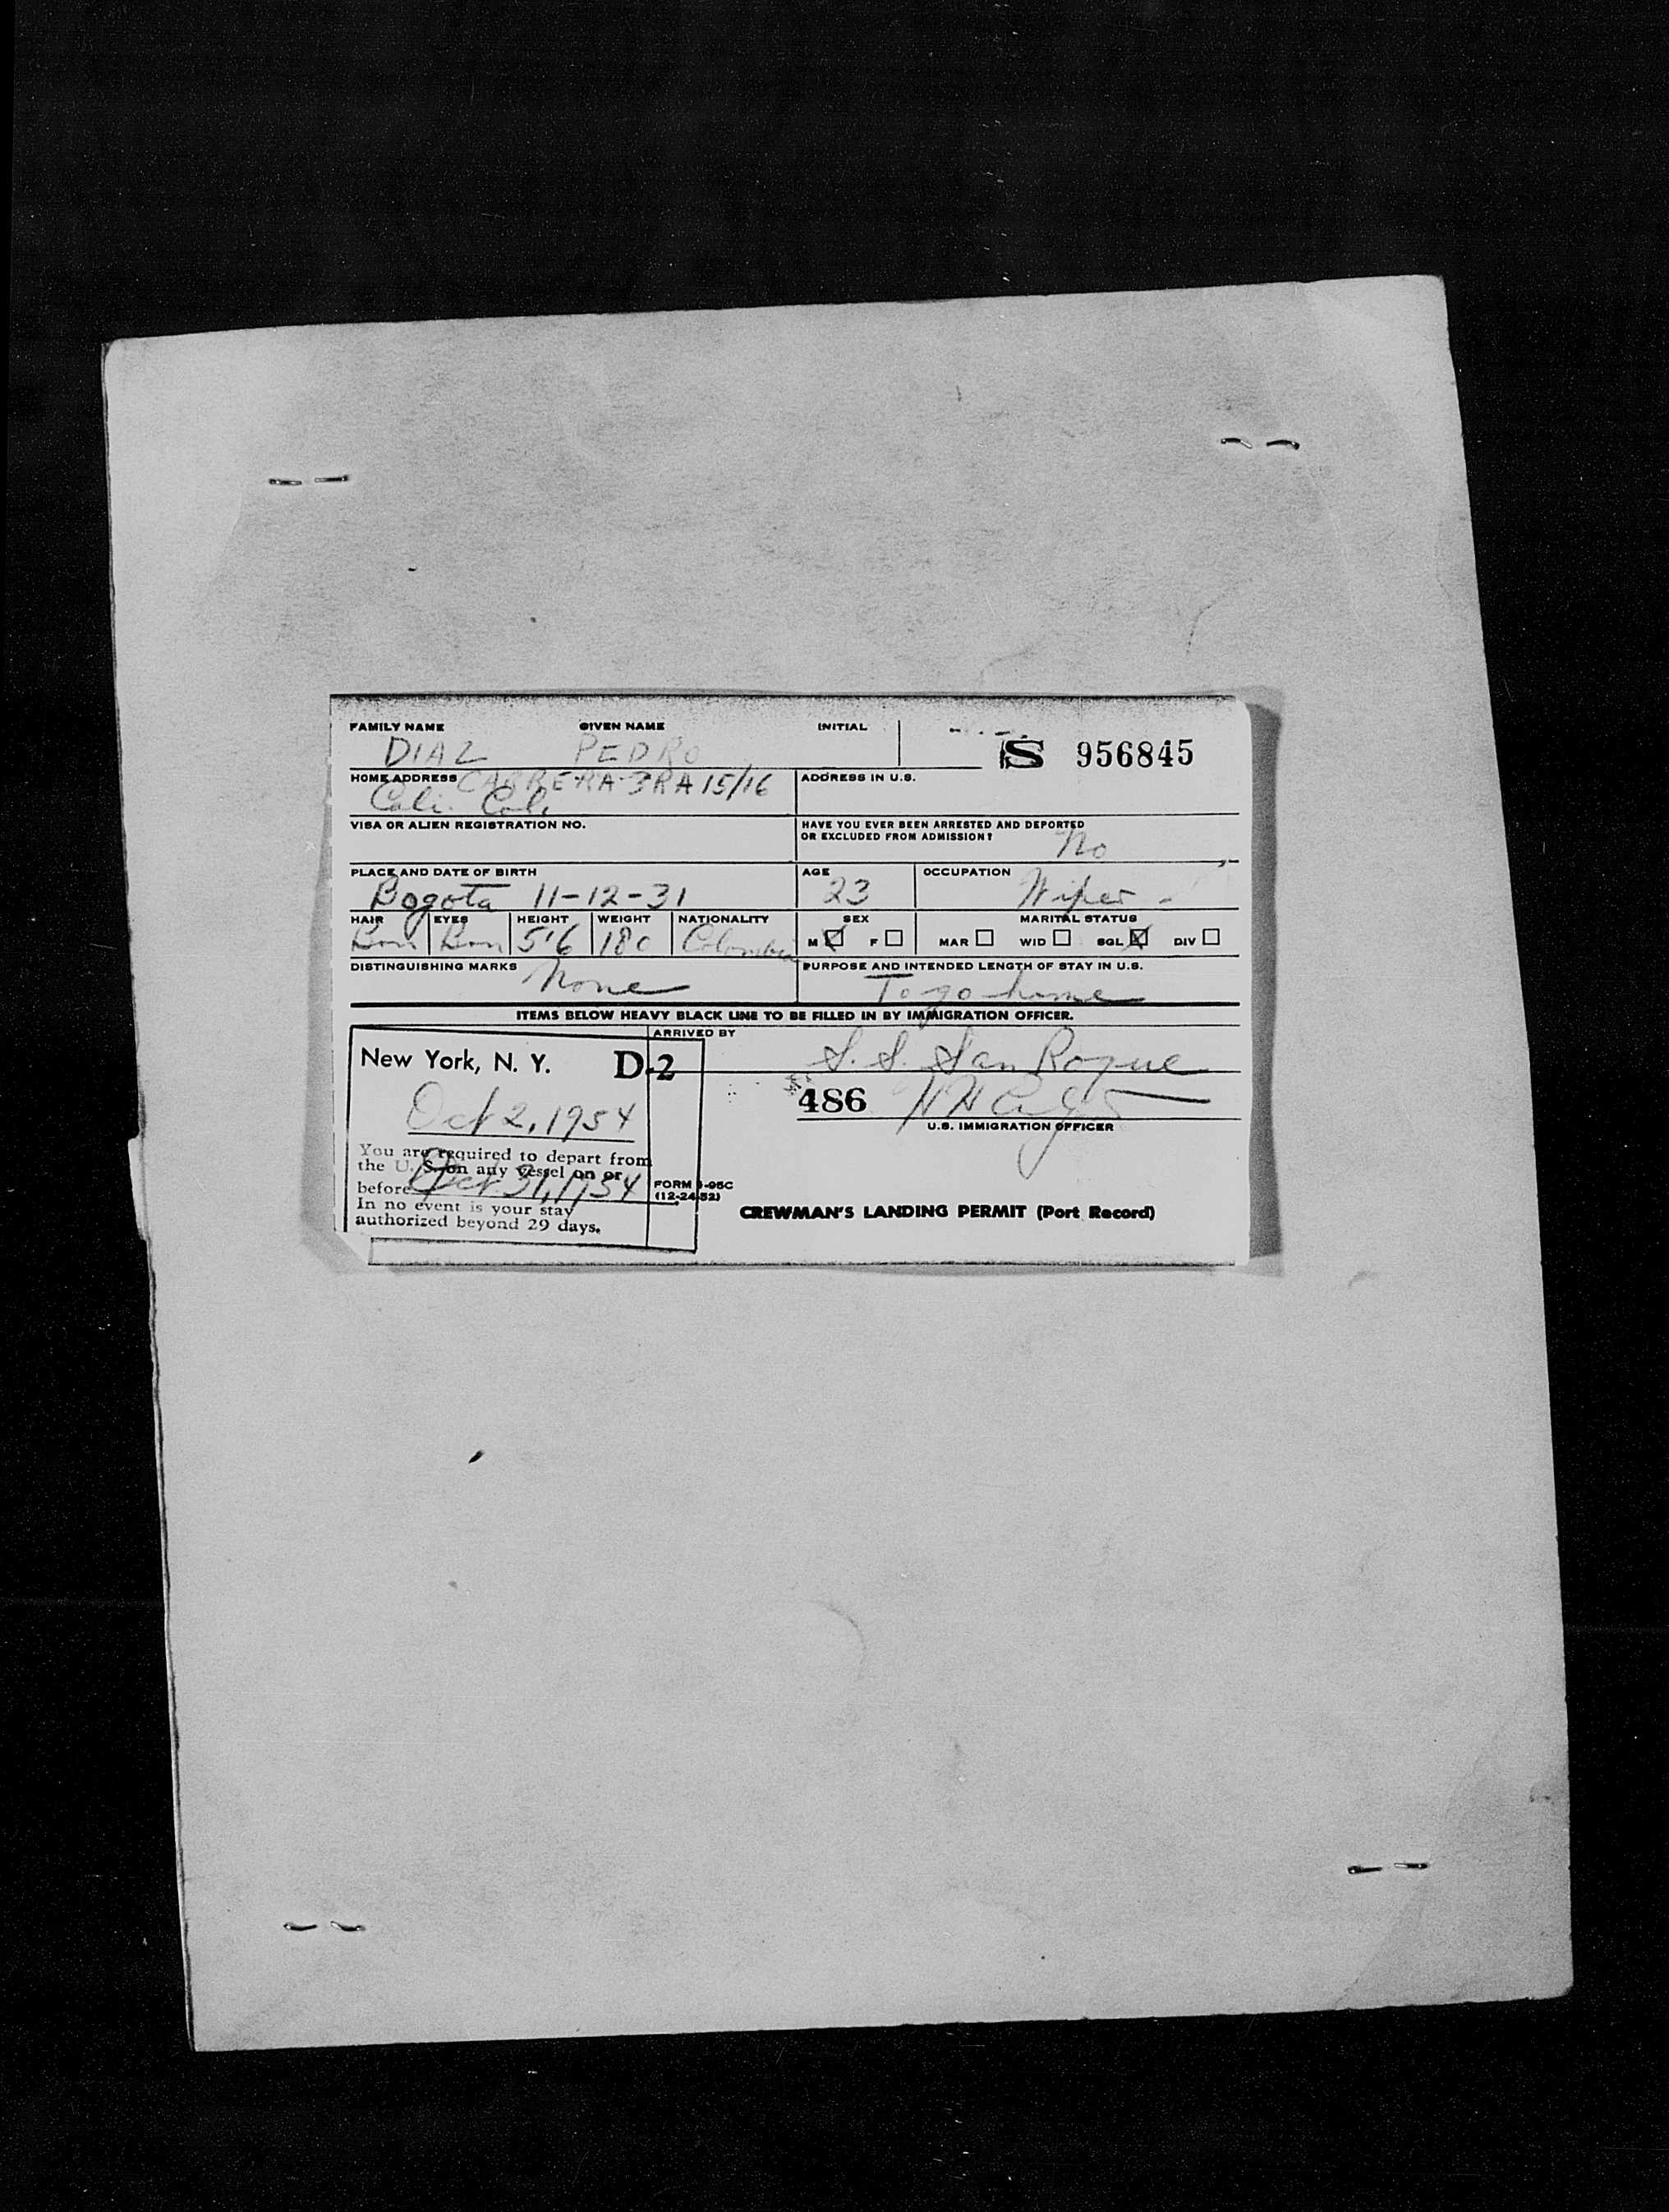 FAMILY NAME GIVEN NAME INITIAL
DIAZ PEDRO S 956845
HOME ADDRESS CARRERA 3RA 15/16 ADDRESS IN U.S.
Cali. Col.
VISA OR ALIEN REGISTRATION NO. HAVE YOU EVER BEEN ARRESTED AND DEPORTED
OR EXCLUDED FROM ADMISSION? No
PLACE AND DATE OF BIRTH AGE OCCUPATION
Bogota 11-12-31 23 Wiper -
HAIR EYES HEIGHT WEIGHT NATIONALITY SEX MARITAL STATUS
Brn Brn 5'6 180 Colombia M F MAR WID SGL DIV
DISTINGUISHING MARKS None PURPOSE AND INTENDED LENGTH OF STAY IN U.S.
To go home
ITEMS BELOW HEAVY BLACK LINE TO BE FILLED IN BY IMMIGRATION OFFICER.
ARRIVED BY
New York, N. Y. D-2 S. S. San Roque
Oct 2, 1954 486
U.S. IMMIGRATION OFFICER
You are required to depart from
the U. S. on any vessel on or
before Oct 31, 1954 FORM I-95C
(12-24-52)
In no event is your stay
authorized beyond 29 days.
CREWMAN'S LANDING PERMIT (Port Record)